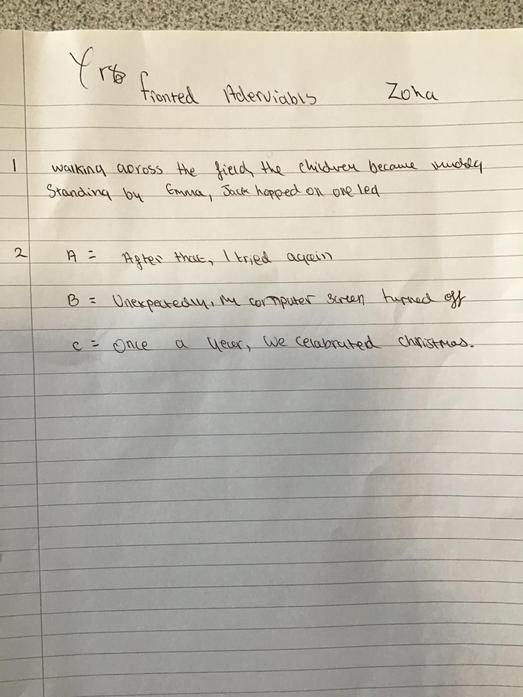 Yr6
fronted Aderviabls Zoha
1 walking across the field, the children became muddy
Standing by Emma, Jack hopped on one led
2 A = After that, I tried again
B = Unexpectedly, my computer screen turned off
C = Once a year, we celabrated christmas.